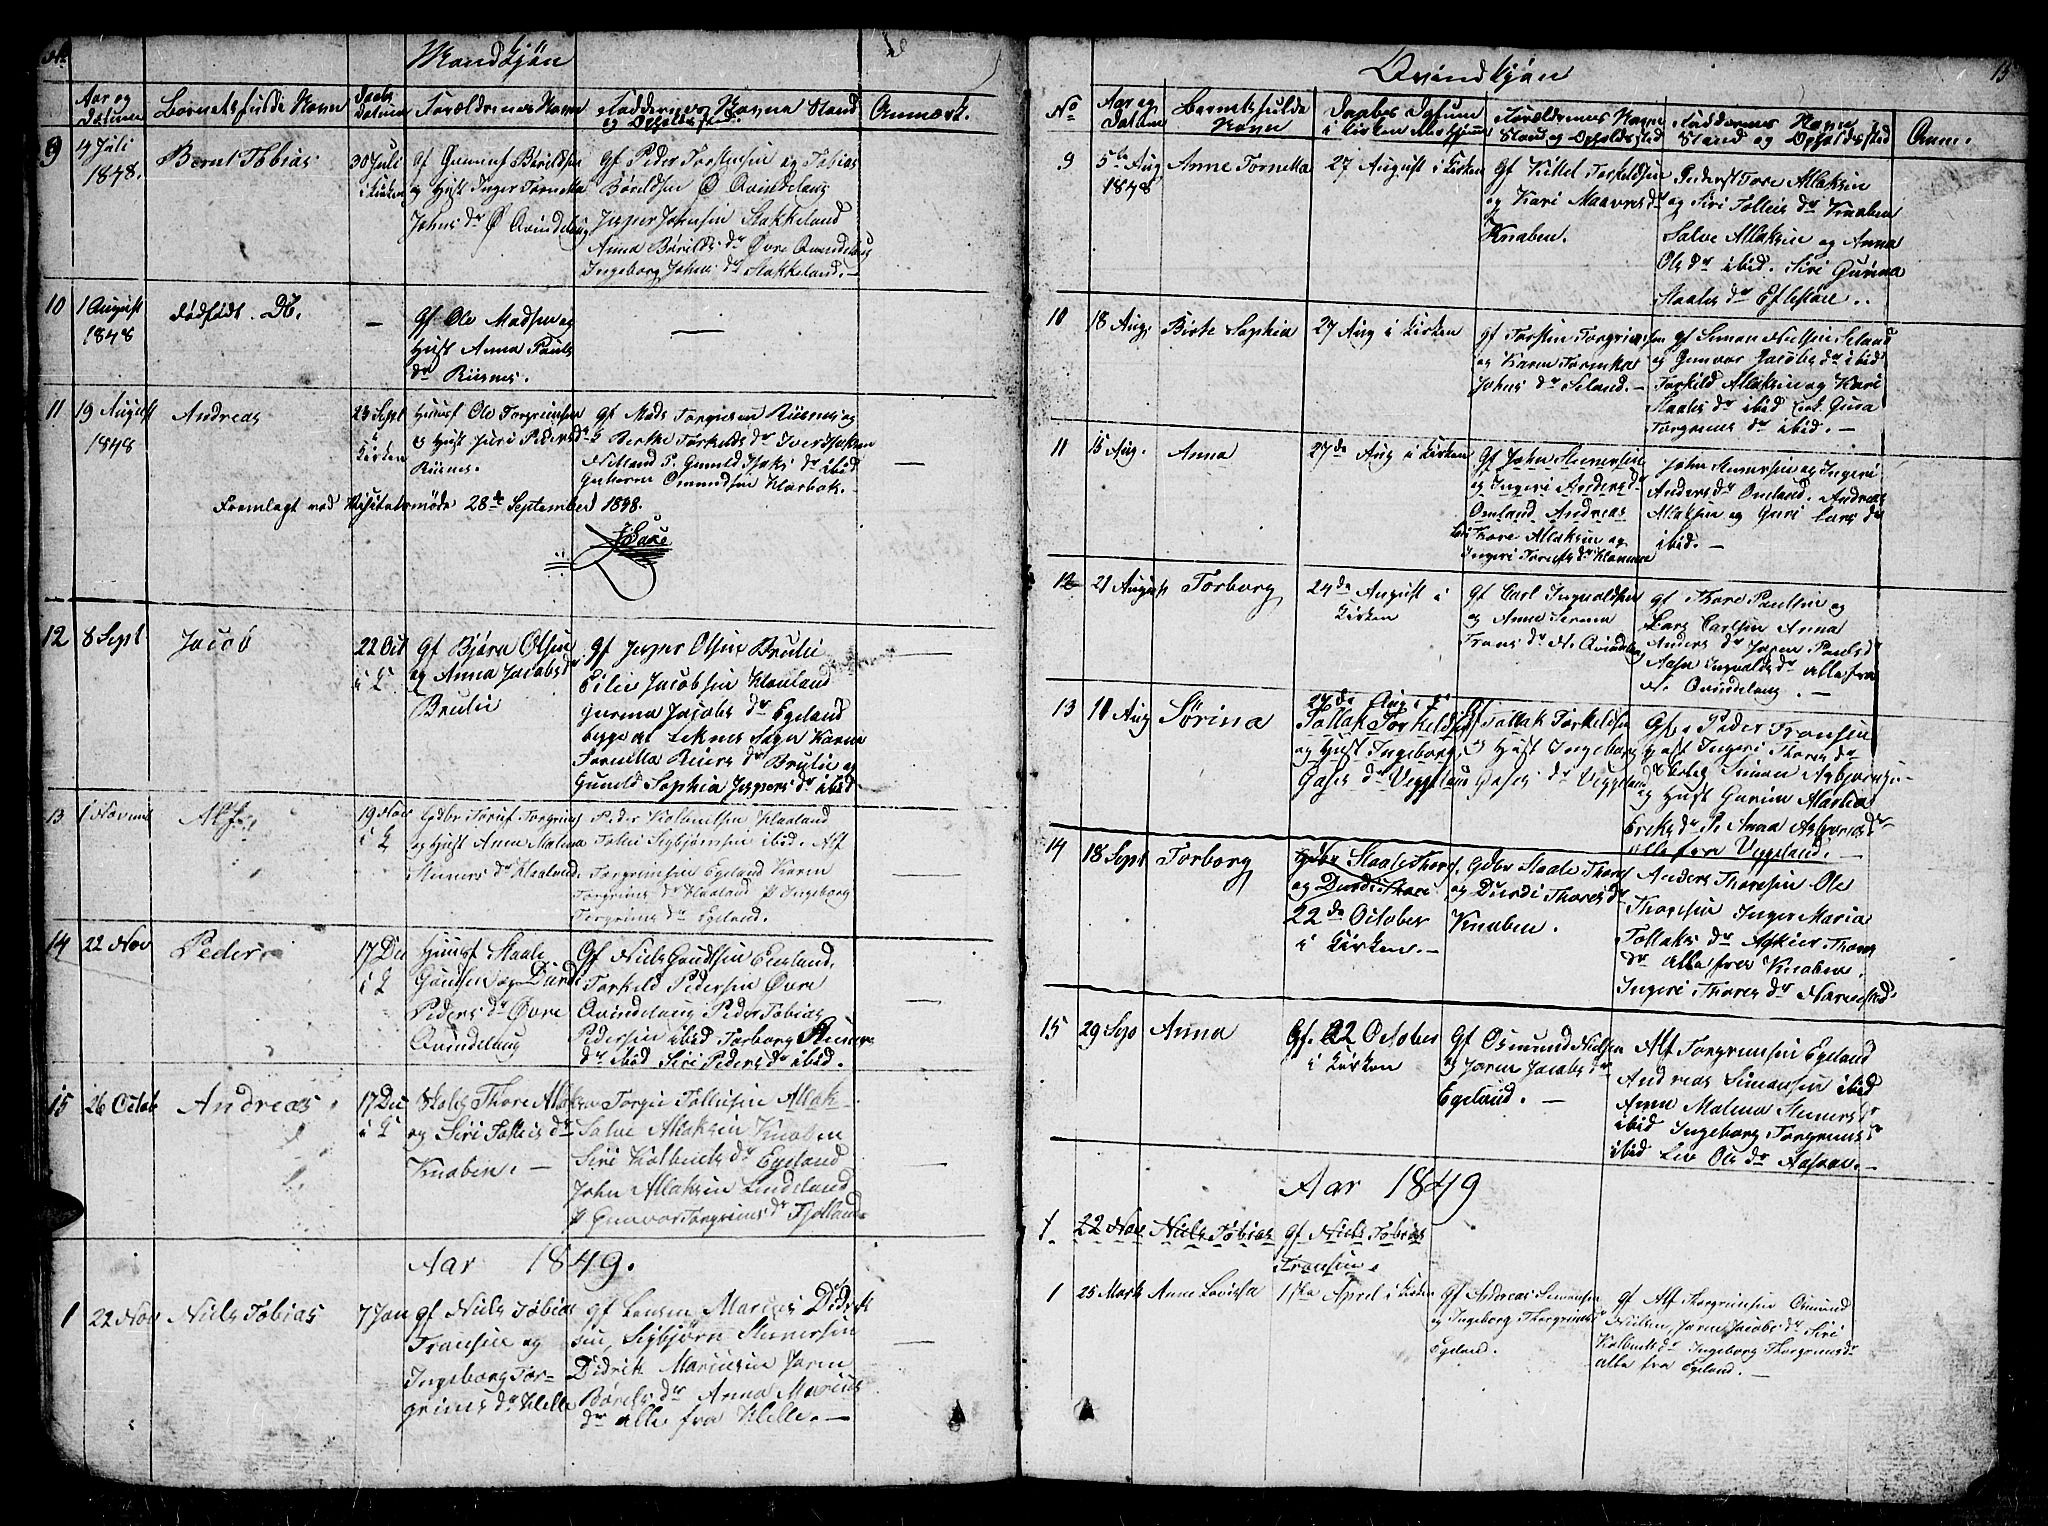 Mandkjön
Aar og Datum
Barnets fulde Navn
Daabs Datum
Forældrenes Navn
Faddernes Navne Stand og Opholdssted
Anmærk.
9
4 Juli 1848.
Bernt Tobias
30 Juli i Kirken
Gf Gunuf Bårildsen
og Hust Inger Tornetta
Johns dr Ø Qvindelaug
Gf Peder Torstensen og Tobias
Bårildsen Ø Qvindelaug
Jesper Johnsen Stakkeland
Anna Bårilds dr Øvre Qvindelaug
Ingeborg Johns dr Stakkeland.—
10
1 August 1848
dødfødt. D.
—
Gf Ole Madsen og
Hust Anna Pauls
dr Risnes.
—
11
19 August 1848
Andreas
23 Sept i Kirken
Huusf Ole Torgrimsen
& Hust Juri Peders dr
Risnes.
Gf Mads Torgrimsen Risnes og
Berthe Torkelds dr
Netland P. Gunild Isaks dr ibid
Guttorm Omundsen Klarbak.
—
Fremlagt ved Visitatsmøde 28de September 1848.
12
8 Sept
Jacob
22 Oct i K
Gf Bjørn Olsen
og Anna Jacobs dr
Brulie
Gf Jesper Olsen Brulie
Eilev Jacobsen Haaland
Gurina Jacobs dr Egeland
begge af Leknes Sogn Karen
Tornetta Reiers dr Brulie og
Gunild Sophia Jespers dr ibid
—
13
1 Novem
Alf
19 Nov i K
Gdbr Toruf Torgrims
og Hust Anne Malena
Steners dr Haaland.
Peder Kielandsen Haaland
Tollei Sigbjørnsen ibid. Alf
Torgrimsen Egeland Karen
Torgrims dr Haaland P Ingeborg
Torgrims dr Egeland.
—
14
22 Nov
Peder
17 Dec i K
Huusf Staale
Gundsen og Durdi
Peders dr Øvre
Qvindelaug
Gf Niels Gundsen Eeland.
Torkild Pedersen Øvre
Qvindelaug Peder Tobias
Pedersen ibid Torborg Steners
dr ibid Siri Peders dr ibid.
—
15
26 Octob
Andreas
17 Dec i K
Skolel. Thore Allaksen
og Siri Tolleis dr
Knaben. —
Torgie Tollisen Allak
Salve Allaksen Knaben
Siri Kolbents dr Egeland
John Allaksen Lindeland
P Gunvor Torgrims dr Fjotland
—
Aar 1849.
1
22 Nov
Niels Tobias
7 Jan
Gf Niels Tobias
Fransen og
Ingeborg Tor-
grims dr Helle
Gf Lensm. Marius Didrik
sen, Sigbjörn Stenersen
Didrik Mariusen Joren
Bårels dr Anna Marius
dr alle fra Helle. —
—
15
Qvindkjön
No
Aar og Datum
Barnets fulde Navn
Daabes Datum i Kirken eller hjemme
Forældrenes Navn Stand og Opholdssted
Faddernes Navn Stand og Opholdssted
Anm.
9
5te Aug 1848
Anne Tornetta
27 August i Kirken
Gf Kittel Torkeldsen
og Kari Maavres dr
Knaben.
Pederst Tore Allaksen
og Siri Tolleis dr Knaben
Salve Allaksen og Anna
Ols dr ibid. Siri Gurina
Staales dr Eftestöl.
10
18 Aug.
Birte Sophia
27 Aug i Kirken
Gf Torsten Torgrimsen
og Karen Tornetta
Johns dr Seland. —
Gf Simon Nilsen Seland
og Gunvor Jacobs dr ibid
Torkild Allaksen og Kari
Staales dr ibid Guria
Torgrims dr ibid. —
11
15 Aug.
Anna
27de Aug i Kirken
Gf John Stenersen
og Ingeri Anders dr
Omland Andreas
Tore Allaksen og
Ingeri Torents dr Klamme
John Stenersen og Ingeri
Anders dr Omland. Andreas
Allaksen og Guri Lars dr
ibid. —
12
21 August
Torborg
24de August i Kirken
Gf Carl Ingvaldsen
og Anne Serina
Frans dr N. Qvindelaug
Gf Thore Paulsen og
Lars Carlsen Anna
Anders dr Joren Pauls dr
Aasa Ingvalds dr alle fra
N. Qvindelaug. —
13
11 Aug
Sørina
27de Aug i K
Tollak Torkeldsen
og Hust Ingeborg
Gases dr Veggeland
Gf Tollak Torkeldsen
& Hust Ingeborg
Gases dr Veggeland
Gf Peder Fransen
Hust Ingeri Thores dr
Simon Asbjörnsen
og Hust Gurine Marthea
Eriks dr P. Anna Asbjörns dr
alle fra Veggeland. —
14
18 Sept
Torborg
Gdbr Staale Thors.
og Durdi Thore
22de October
i Kirken. —
Gdbr Staale Thors
og Durdi Thores dr
Knaben.
Anders Thoresen Ole
Thoresen Inger Maria
Tollaks dr Agnier Thores
dr alle fra Knaben.
Ingeri Thores dr Narvestad.
15
29 Sep
Anna
Gf. 22 October
i Kirken
Gf Osmund Nielsen
og Joren Jacobs dr
Egeland. —
Alf Torgrimsen Egeland
Andreas Simonsen ibid
Anna Malena Steners dr
ibid Ingeborg Torgrims dr
ibid Liv Ols dr Aasen. —
Aar 1849
1
22 Nov
Niels Tobias
Gf Niels Tobias
Fransen.
1
25 Mart
Anne Lovisa
1ste April i Kirken
Gf Andreas Simonsen
og Ingeborg Thorgrims dr
Egeland.
Gf Alf Thorgrimsen Osmund
Nielsen, Joren Jacobs dr Siri
Kolbents dr Ingeborg Thorgrims dr
alle fra Egeland. —